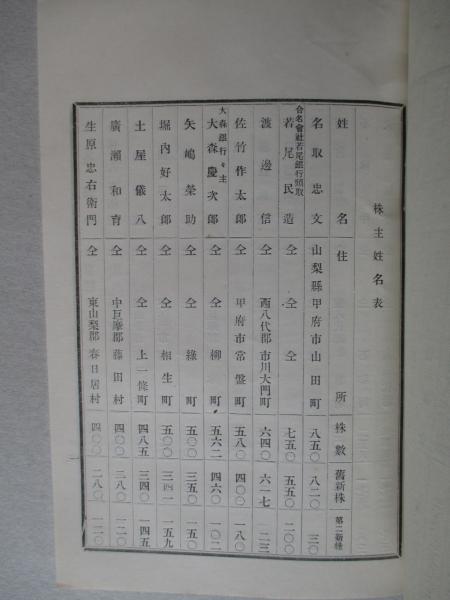 株主姓名表
姓名 住所 株數 舊新株 第二新株
名取忠文 山梨縣甲府市山田町 八五〇 八二〇 三〇
合名會社若尾銀行頭取
若尾民造 仝 仝 仝 七五〇 五五〇 二〇〇
渡邊信 仝 西八代郡市川大門町 六四〇 六一七 二三
佐竹作太郎 仝 甲府市常盤町 五八〇 四〇〇 一八〇
大森銀行々主
大森慶次郎 仝 仝 柳町 五六二 四六〇 一〇二
矢嶋榮助 仝 仝 綠町 五〇〇 三五〇 一五〇
堀内好太郎 仝 仝 相生町 五〇〇 三四一 一五九
土屋儀八 仝 仝 上一條町 四八五 三四〇 一四五
廣瀨和育 仝 中巨摩郡藤田村 四〇〇 二八〇 一二〇
生原忠右衛門 仝 東山梨郡春日居村 四〇〇 二八〇 一二〇